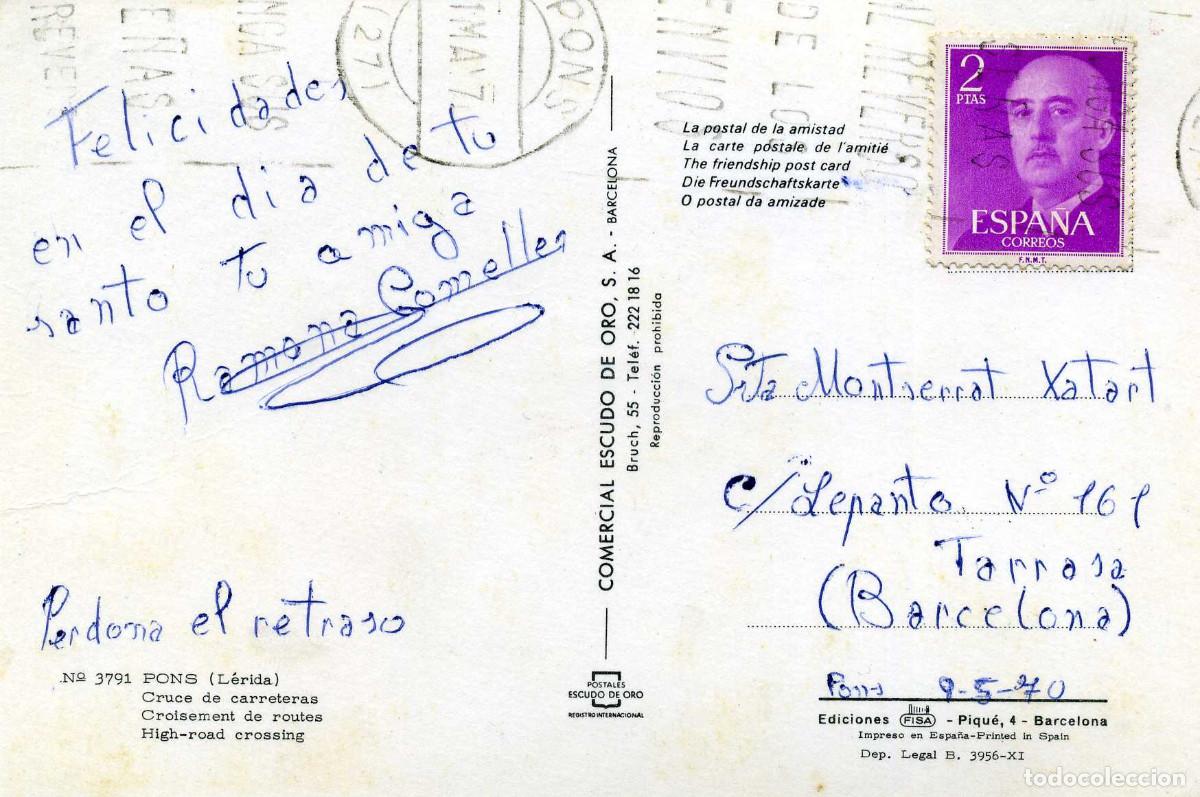 Felicidades
en el dia de tu
santo tu amiga
Ramona Comelles
Perdona el retraso
Nº 3791 PONS (Lérida)
Cruce de carreteras
Croisement de routes
High-road crossing
COMERCIAL ESCUDO DE ORO, S. A. - BARCELONA
Bruch, 55 - Teléf. 222 18 16
Reproducción prohibida
POSTALES
ESCUDO DE ORO
REGISTRO INTERNACIONAL
PONS
La postal de la amistad
La carte postale de l'amitié
The friendship post card
Die Freundschaftskarte
O postal da amizade
2
PTAS
ESPAÑA
CORREOS
F.N.M.T.
Srta Montserrat Xatart
C/Lepanto Nº 161
Tarrasa
(Barcelona)
Pons 9-5-70
Ediciones FISA - Piqué, 4 - Barcelona
Impreso en España-Printed in Spain
Dep. Legal B. 3956-XI
todocoleccion